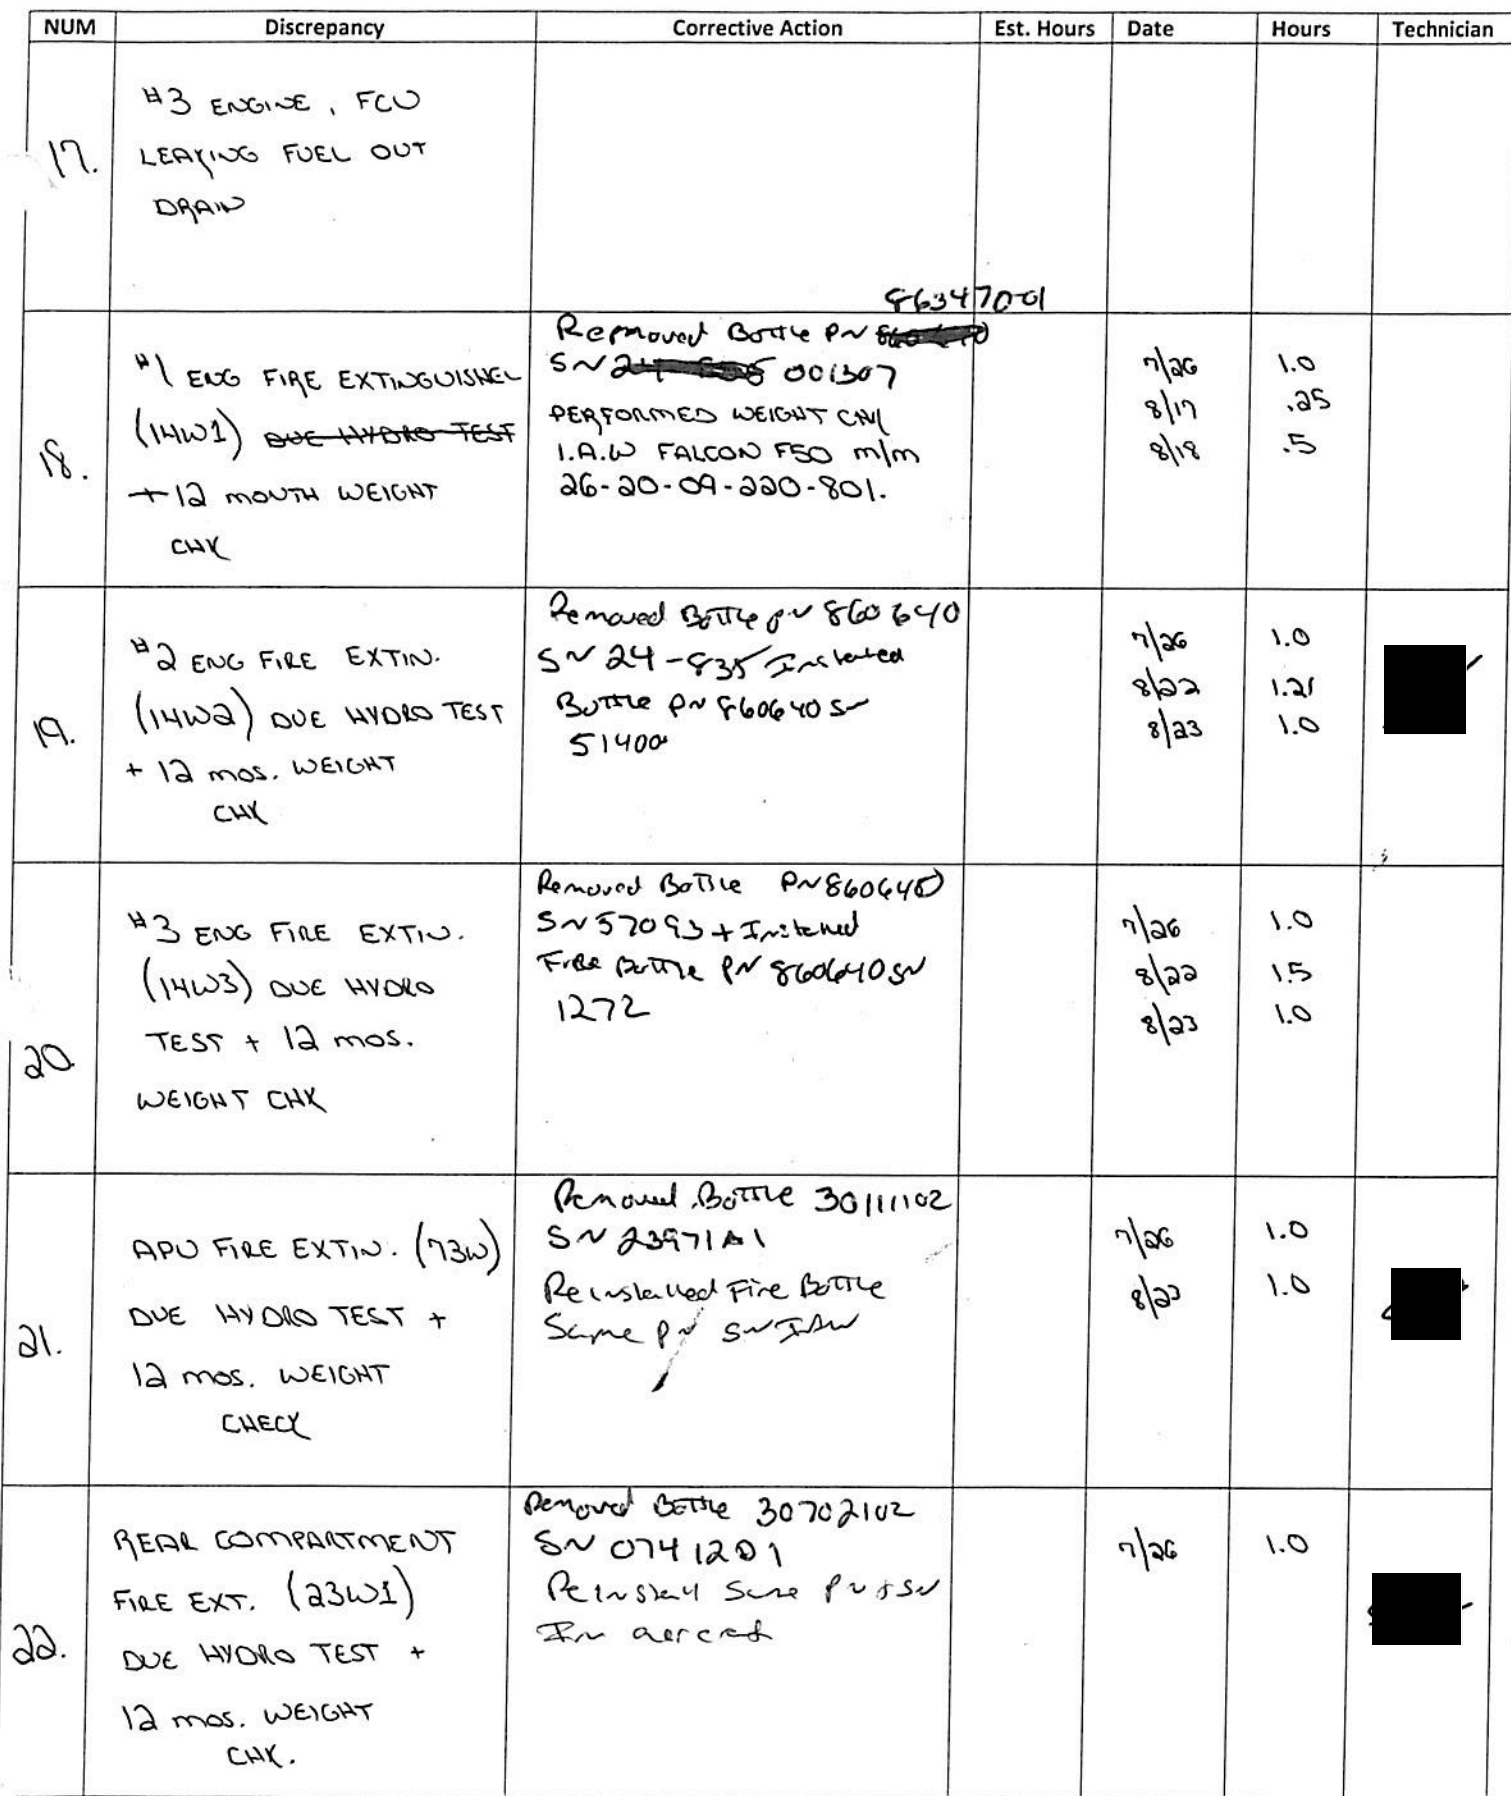 NUM Discrepancy Corrective Action Est. Hours Date Hours Technician
17.
#3 ENGINE, FCU
LEAKING FUEL OUT
DRAIN
18.
#1 ENG FIRE EXTINGUISHER
(14W1) DUE HYDRO TEST
+ 12 MONTH WEIGHT
CHK
863470-01
Removed Bottle PN
SN 001307
PERFORMED WEIGHT CHK
I.A.W FALCON F50 m/m
26-20-09-220-801.
7/26 1.0
8/17 .25
8/18 .5
19.
#2 ENG FIRE EXTIN.
(14W2) DUE HYDRO TEST
+ 12 mos. WEIGHT
CHK
Removed Bottle PN 860640
SN 24-835 Installed
Bottle PN 860640 SN
51400
7/26 1.0
8/22 1.21
8/23 1.0
20.
#3 ENG FIRE EXTIN.
(14W3) DUE HYDRO
TEST + 12 mos.
WEIGHT CHK
Removed Bottle PN 860640
SN 57093 + Installed
Fire Bottle PN 860640 SN
1272
7/26 1.0
8/22 1.5
8/23 1.0
21.
APU FIRE EXTIN. (73W)
DUE HYDRO TEST +
12 mos. WEIGHT
CHECK
Removed Bottle 30111102
SN 23971A1
Reinstalled Fire Bottle
Same PN SN IAW
7/26 1.0
8/23 1.0
22.
REAR COMPARTMENT
FIRE EXT. (23W1)
DUE HYDRO TEST +
12 mos. WEIGHT
CHK.
Removed Bottle 30702102
SN 07412D1
Reinstall Same PN + SN
In aircraft
7/26 1.0